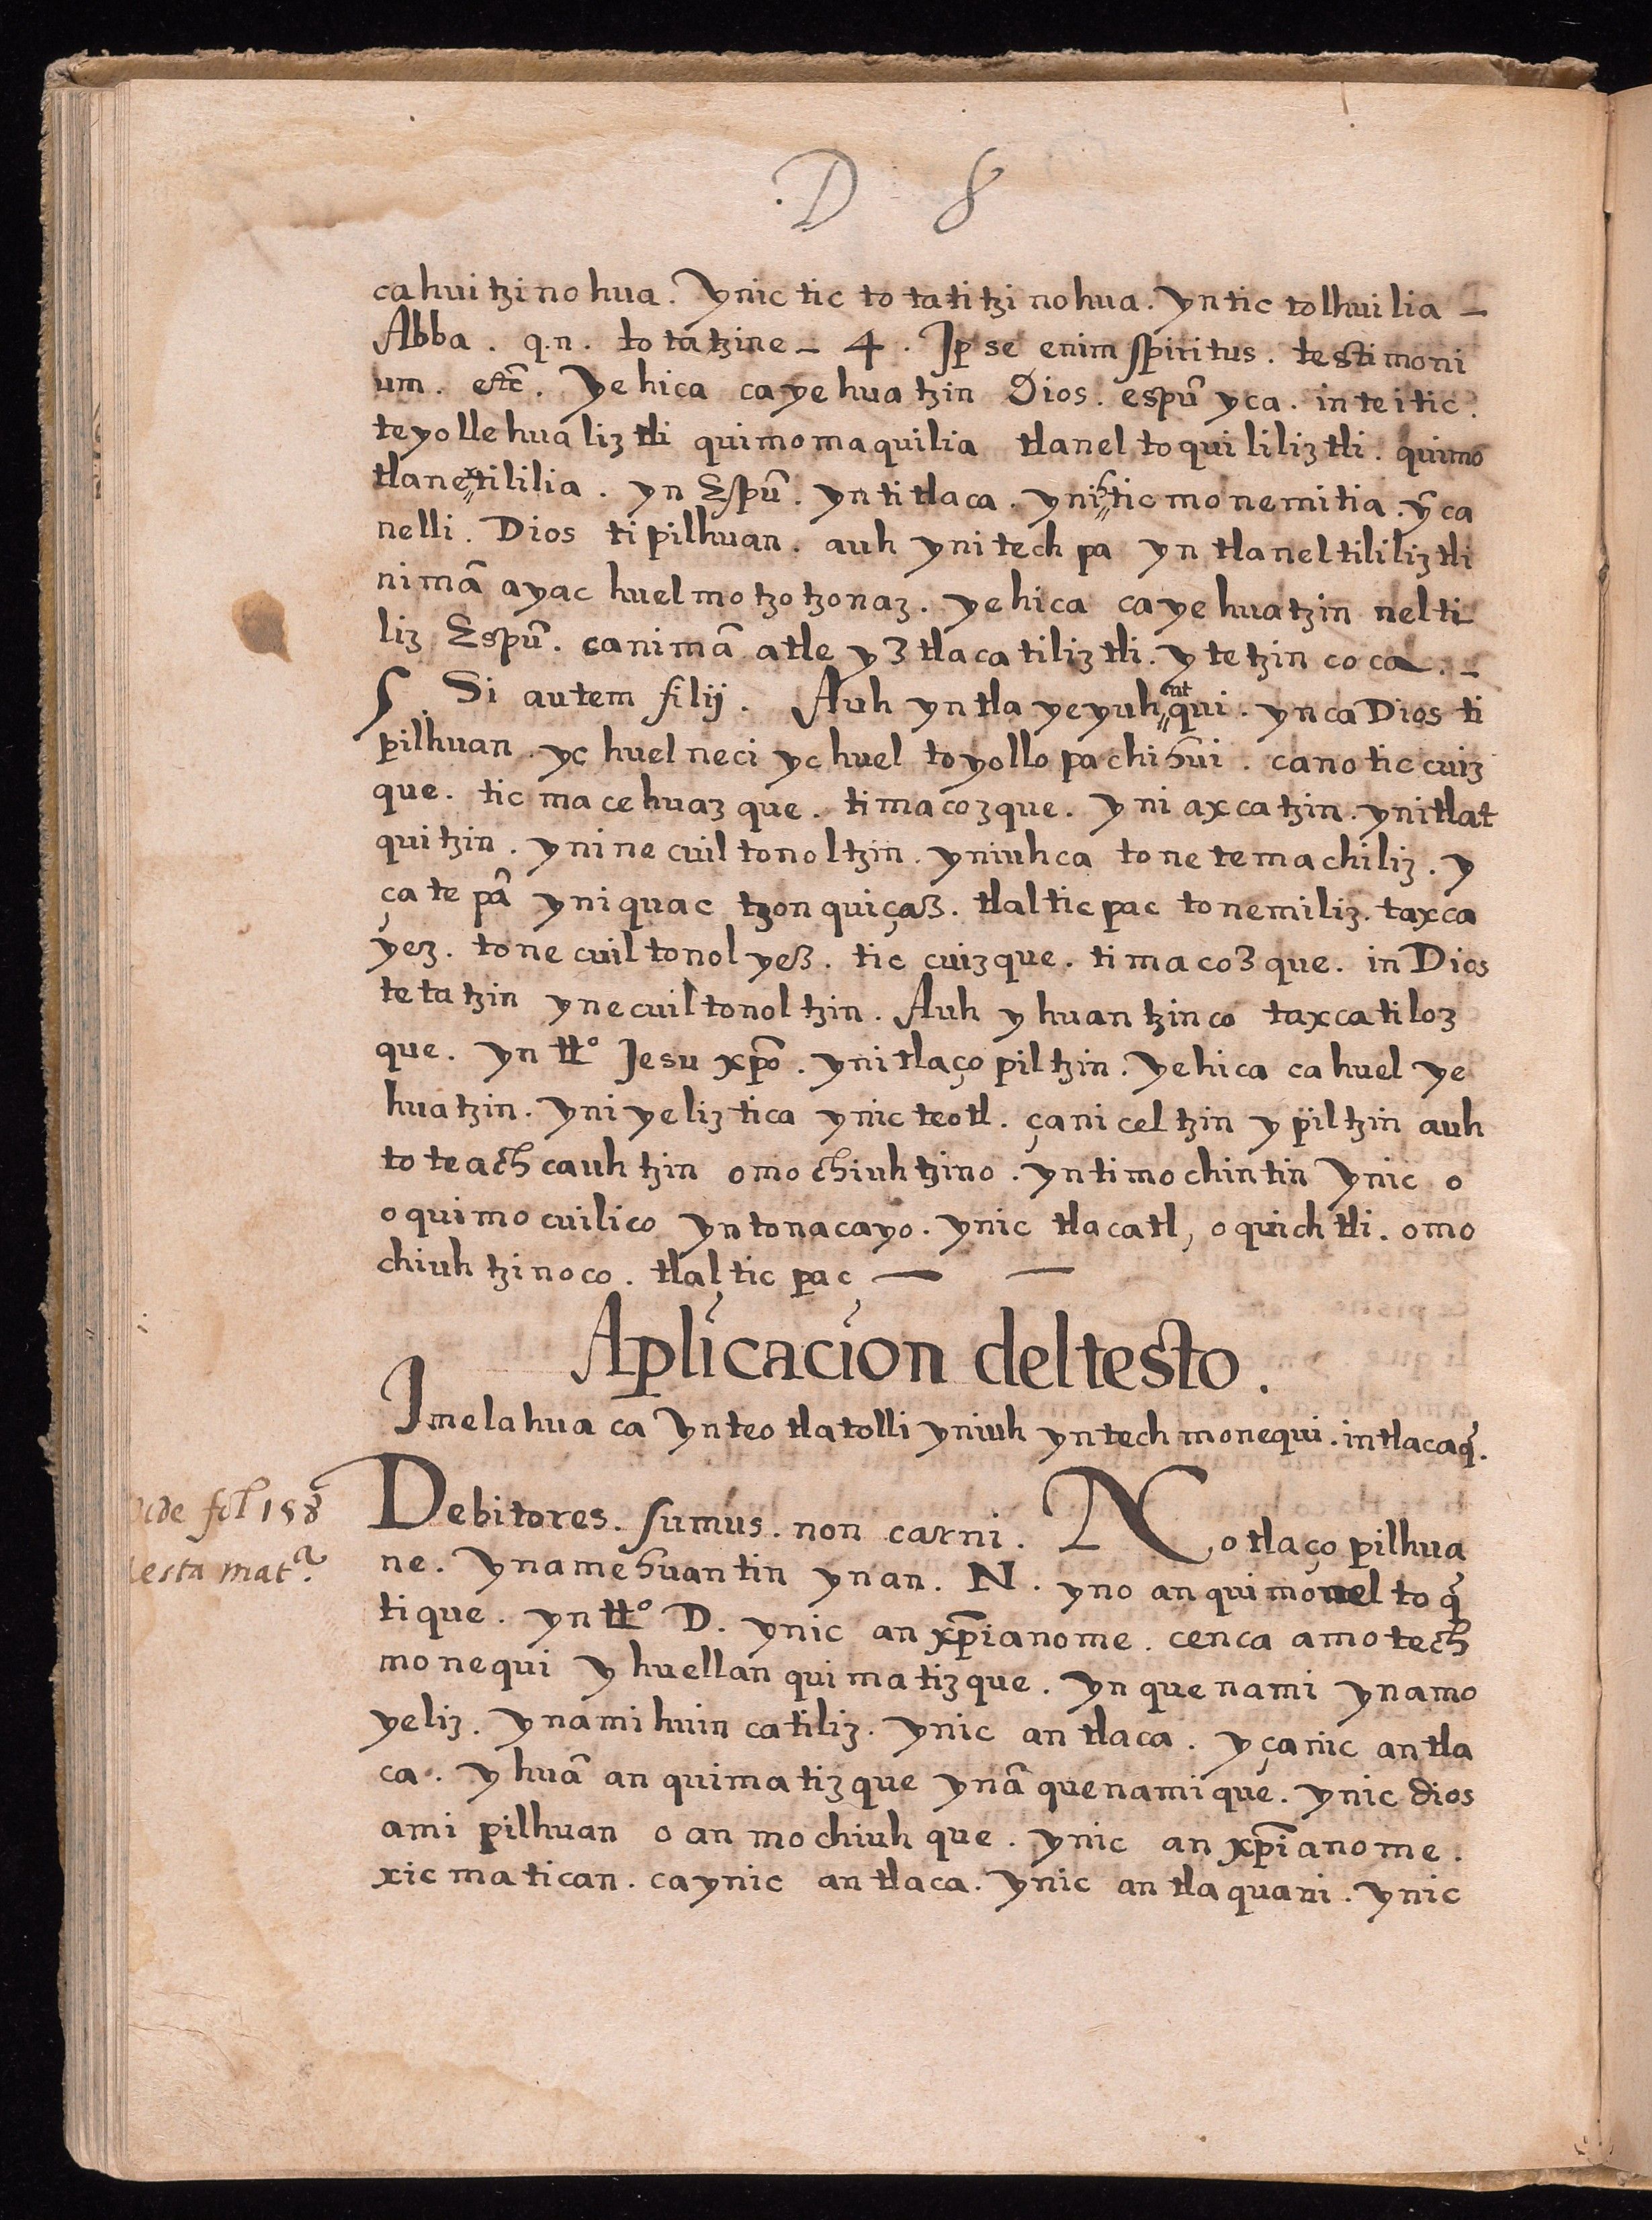 D 8
cahuitzinohua. Ynic tic totatitzinohua. yntic tolhuilia –
Abba. q.n. totatzine – 4. Jpse enim spiritus. testimoni
um. etc̃. Yehica cayehuatzin Dios. espũ yca. inteitic.
teyollehualiztli quimomaquilia tlaneltoquililiztli. quimo
tlanextililia. yn Espũ. yntitlaca. ynihtic monemitia. ỹca
nelli. Dios tipilhuan. auh ynitechpa yn tlaneltililiztli
nimã ayac huelmotzotzonaz. yehica cayehuatzin nelti
liz Espũ. canimã atle yztlacatiliztli. ytetzinco ca. –
5. Si autem filij. Auh yntla yeyuhntqui. ynca Dios ti
pilhuan. yc huel neci yc huel toyollo pachihui. cano ticcuiz
que. ticmacehuazque. timacozque. yniaxcatzin. ynitlat
quitzin. yninecuiltonoltzin. yniuhca tonetemachiliz. y
çatepã yniquac tzonquiçaz. tlalticpac tonemiliz. taxca
yez. tonecuiltonol yez. tic cuizque. timacozque. in Dios
tetatzin ynecuiltonoltzin. Auh yhuantzinco taxcatiloz
que. yn tt° Jesu xp̃o. ynitlaçopiltzin. yehica cahuel ye
huatzin. yniyeliztica ynic teotl. çaniceltzin ypiltzin auh
toteachcauhtzin omochiuhtzino. yntimochintin ynic o
oquimocuilico yntonacayo. ynic tlacatl, oquichtli. omo
chiuhtzinoco. tlalticpac — —
Aplicacion deltesto.
Jmelahuaca Ynteotlatolli yniuh yntechmonequi. intlacaq̃.
Debitores. sumus. non carni. Notlaçopilhua
ne. Ynamehuantin ynan. N. yno anquimoneltoq̃
tique. yn tt° D. ynic anxp̃ianome. cenca amotech
monequi yhuellanquimatizque. ynquenami ynamo
yeliz. ynamihuincatiliz. ynic antlaca. yçanic antla
ca. yhuã anquimatizque ynã quenamique. ynic dios
amipilhuan oanmochiuhque. ynic anxp̃ianome.
xicmatican. caynic antlaca. ynic antlaquani. ynic
fol 158
esta mat.ª